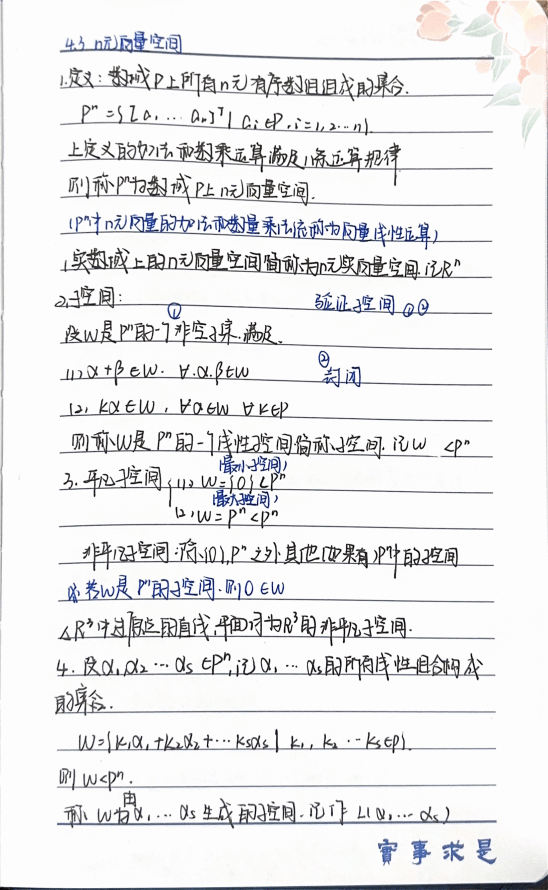 4.3 n元向量空间
1.定义:数域P上所有n元有序数组组成的集合.
Pⁿ={[a₁ ... aₙ]ᵀ| aᵢ∈P, i=1,2...n}.
上定义的加法和数乘运算满足八条运算规律
则称Pⁿ为数域P上n元向量空间.
(Pⁿ中n元向量的加法和数量乘法统称为向量线性运算)
实数域上的n元向量空间简称为n元实向量空间.记Rⁿ
2.子空间: 验证子空间①②
①
设W是Pⁿ的一个非空子集.满足.
(1) α+β∈W. ∀.α.β∈W ②封闭
(2) kα∈W, ∀α∈W ∀k∈P
则称W是Pⁿ的一个线性子空间简称子空间.记W <Pⁿ
(最小子空间)
3.平凡子空间{(1) W={0}<Pⁿ
(最大子空间)
(2) W=Pⁿ<Pⁿ
非平凡子空间:除{0},Pⁿ之外其他(如果有)Pⁿ中的子空间
若W是Pⁿ的子空间.则0∈W
△R³中过原点的直线,平面词为R³的非平凡子空间.
4.设α₁,α₂...αₛ∈Pⁿ,记α₁...αₛ的所有线性组合构成
的集合.
W={k₁α₁+k₂α₂+...kₛαₛ| k₁, k₂...kₛ∈P}.
则W<Pⁿ.
称W为由α₁...αₛ生成的子空间.记作L(α₁,...αₛ)
實事求是